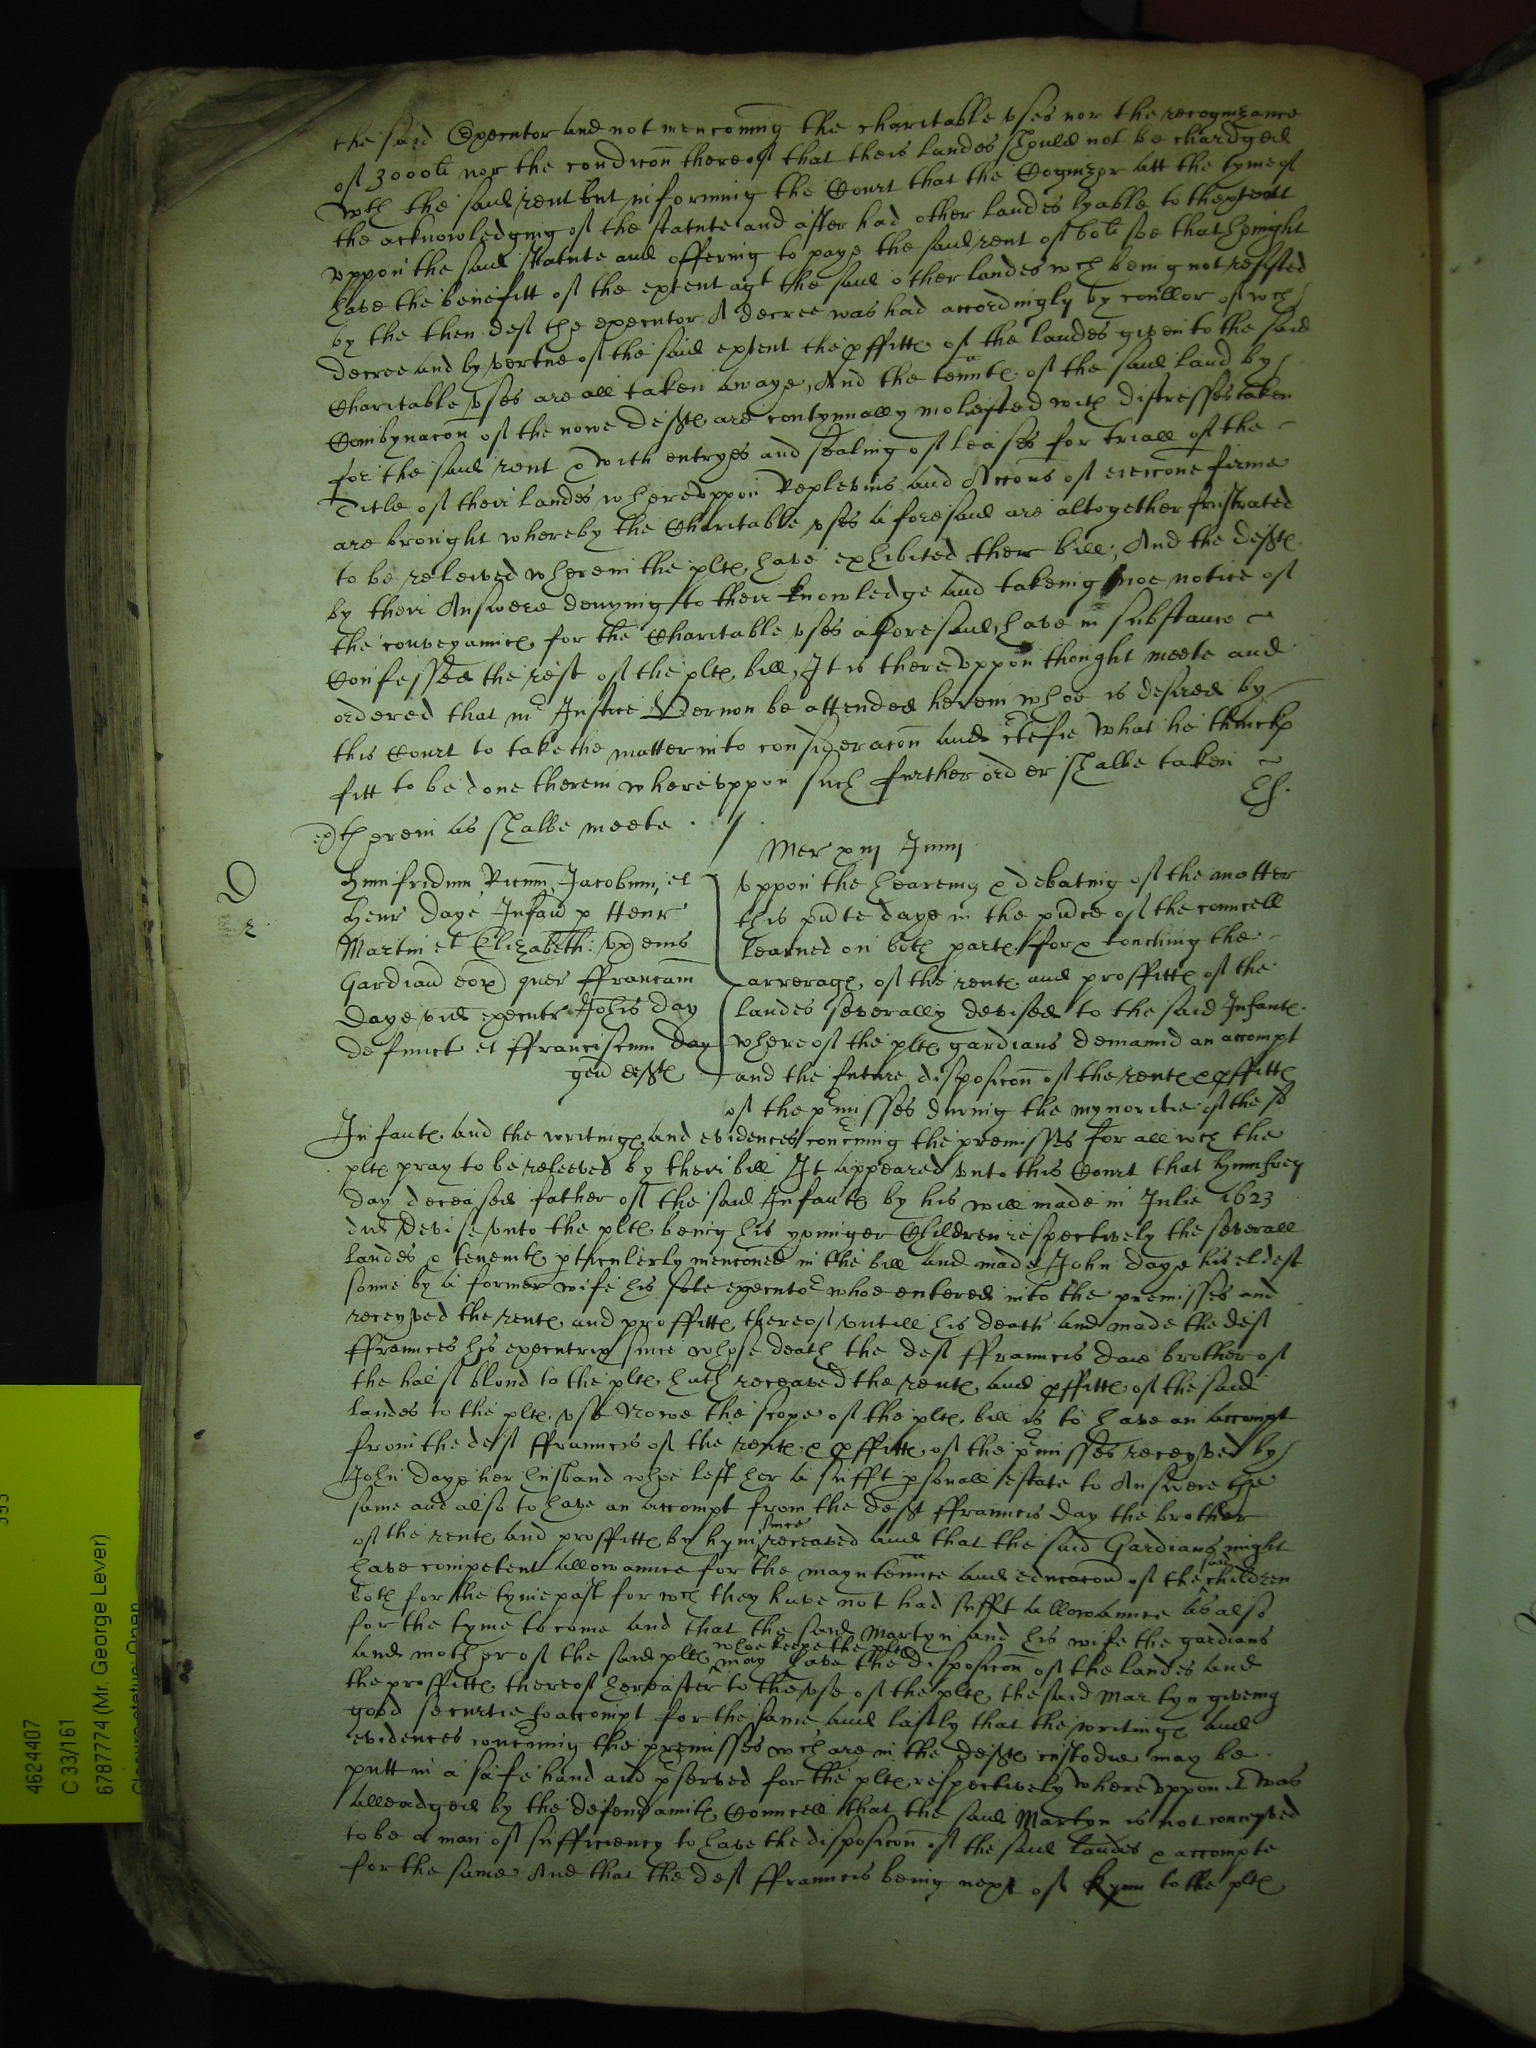 the said Executor and not menconing the charitable vses nor the recognizance
of 3000li nor the condicon thereof that theis landes should not be chardged
wth the said rent but informing the Court that the Cognizor att the tyme of
the acknowledging of the statute and after had other landes lyable to thextent
vppon the said statute and offering to paye the said rent of 60li soe that he might
have the benefitt of the extent agt the said other landes wch being not resisted
by the then deft the executor A decree was had accordingly by coullor of wch
decree and by vertue of the said extent the pffitte of the landes given to the said
Charitable vses are all taken awaye, And the tennte of the said land by
Combynacon of the nowe defte are contynually molested with distresses taken
for the said rent & with entryes and sealing of leases for triall of the
Title of their landes wherevppon Replevins and Accons of eieccone firme
are brought whereby the Charitable vses aforesaid are altogether frustrated
to be releived wherein the plte have exhibited their bill, And the defte
by their Answere denying to their knowledge and takeing noe notice of
the conveyannce for the Charitable vses aforesaid, have in substance
Confessed the rest of the plte bill, It is therevppon thought meete and
ordered that mr Justice Vernon be attended herein whoe is desired by
this Court to take the matter into consideracon and ctefie what he thincks
fitt to be done therein wherevppon such further order shalbe taken
therein as shalbe meete
Mer xiij Junij
D
Humfridum Ricum, Jacobum, et
Henr Daye Infan p Henr
Martin et Elizabeth: vx eius
Gardian eor quer ffrancam
Daye vid executr Johis Day
defunct et ffranciscum Day
gen defte
Vppon the heareing & debating of the matter
this pnte daye in the pnce of the councell
learned on both parte for & touching the
arrerage of the rente and proffitte of the
landes severally devised to the said Infante
whereof the plte gardians demannd an accompt
and the future disposicon of the rente & pffitte
of the pmisses during the mynoritie of the se
Infante and the writinge and evidences concning the premisses for all wch the
plte pray to be releeved by their bill It appeared vnto this Court that Humfrey
Day deceased father of the said Infante by his will made in Julie 1623
did devise vnto the plte being his younger Children respectively the severall
landes & tenemte pticulerly menconed in the bill and made John Daye his eldest
sonne by a former wife his sole executor whoe entered into the premisses and
receyved the rente and proffitte thereof vntill his death and made the deft
ffrannces his executrix since whose death the deft ffranncis Daie brother of
the halfe bloud to the plte hath receaved the rente and pffitte of the said
landes to the plte vse Nowe the scope of the plte bill is to have an accompt
from the deft ffrannces of the rente & pffitte of the pmisses receyved by
John Daye her husband whoe left her a sufft psonall estate to Answere the
same and also to have an accompt from the deft ffranncis Day the brother
of the rente and proffitte by hym since receaved and that the said Gardians might
have competent allowannce for the mayntennce and educacon of the said children
both for the tyme past for wch they have not had sufft allowannce as also
for the tyme to come and that the said Martyn and his wife the gardians
and mother of the said plte whoe keepe the plte may have the disposicon of the landes and
the proffitte thereof hereafter to the vse of the plte the said Martyn giveing
good securitie to accompt for the same and lastly that the writinge and
evidences concning the premisses wch are in the defte custodie may be
putt in a safe hand and pserved for the plte respectively wherevppon it was
alleadged by the defendannte Councell that the said Martyn is not conceyved
to be a man of sufficiency to have the disposicon of the said landes & accompte
for the same And that the deft ffranncis being next of kynn to the plte
4624407
C 33/161
67877774 (Mr. George Lever)
Closure status: Open